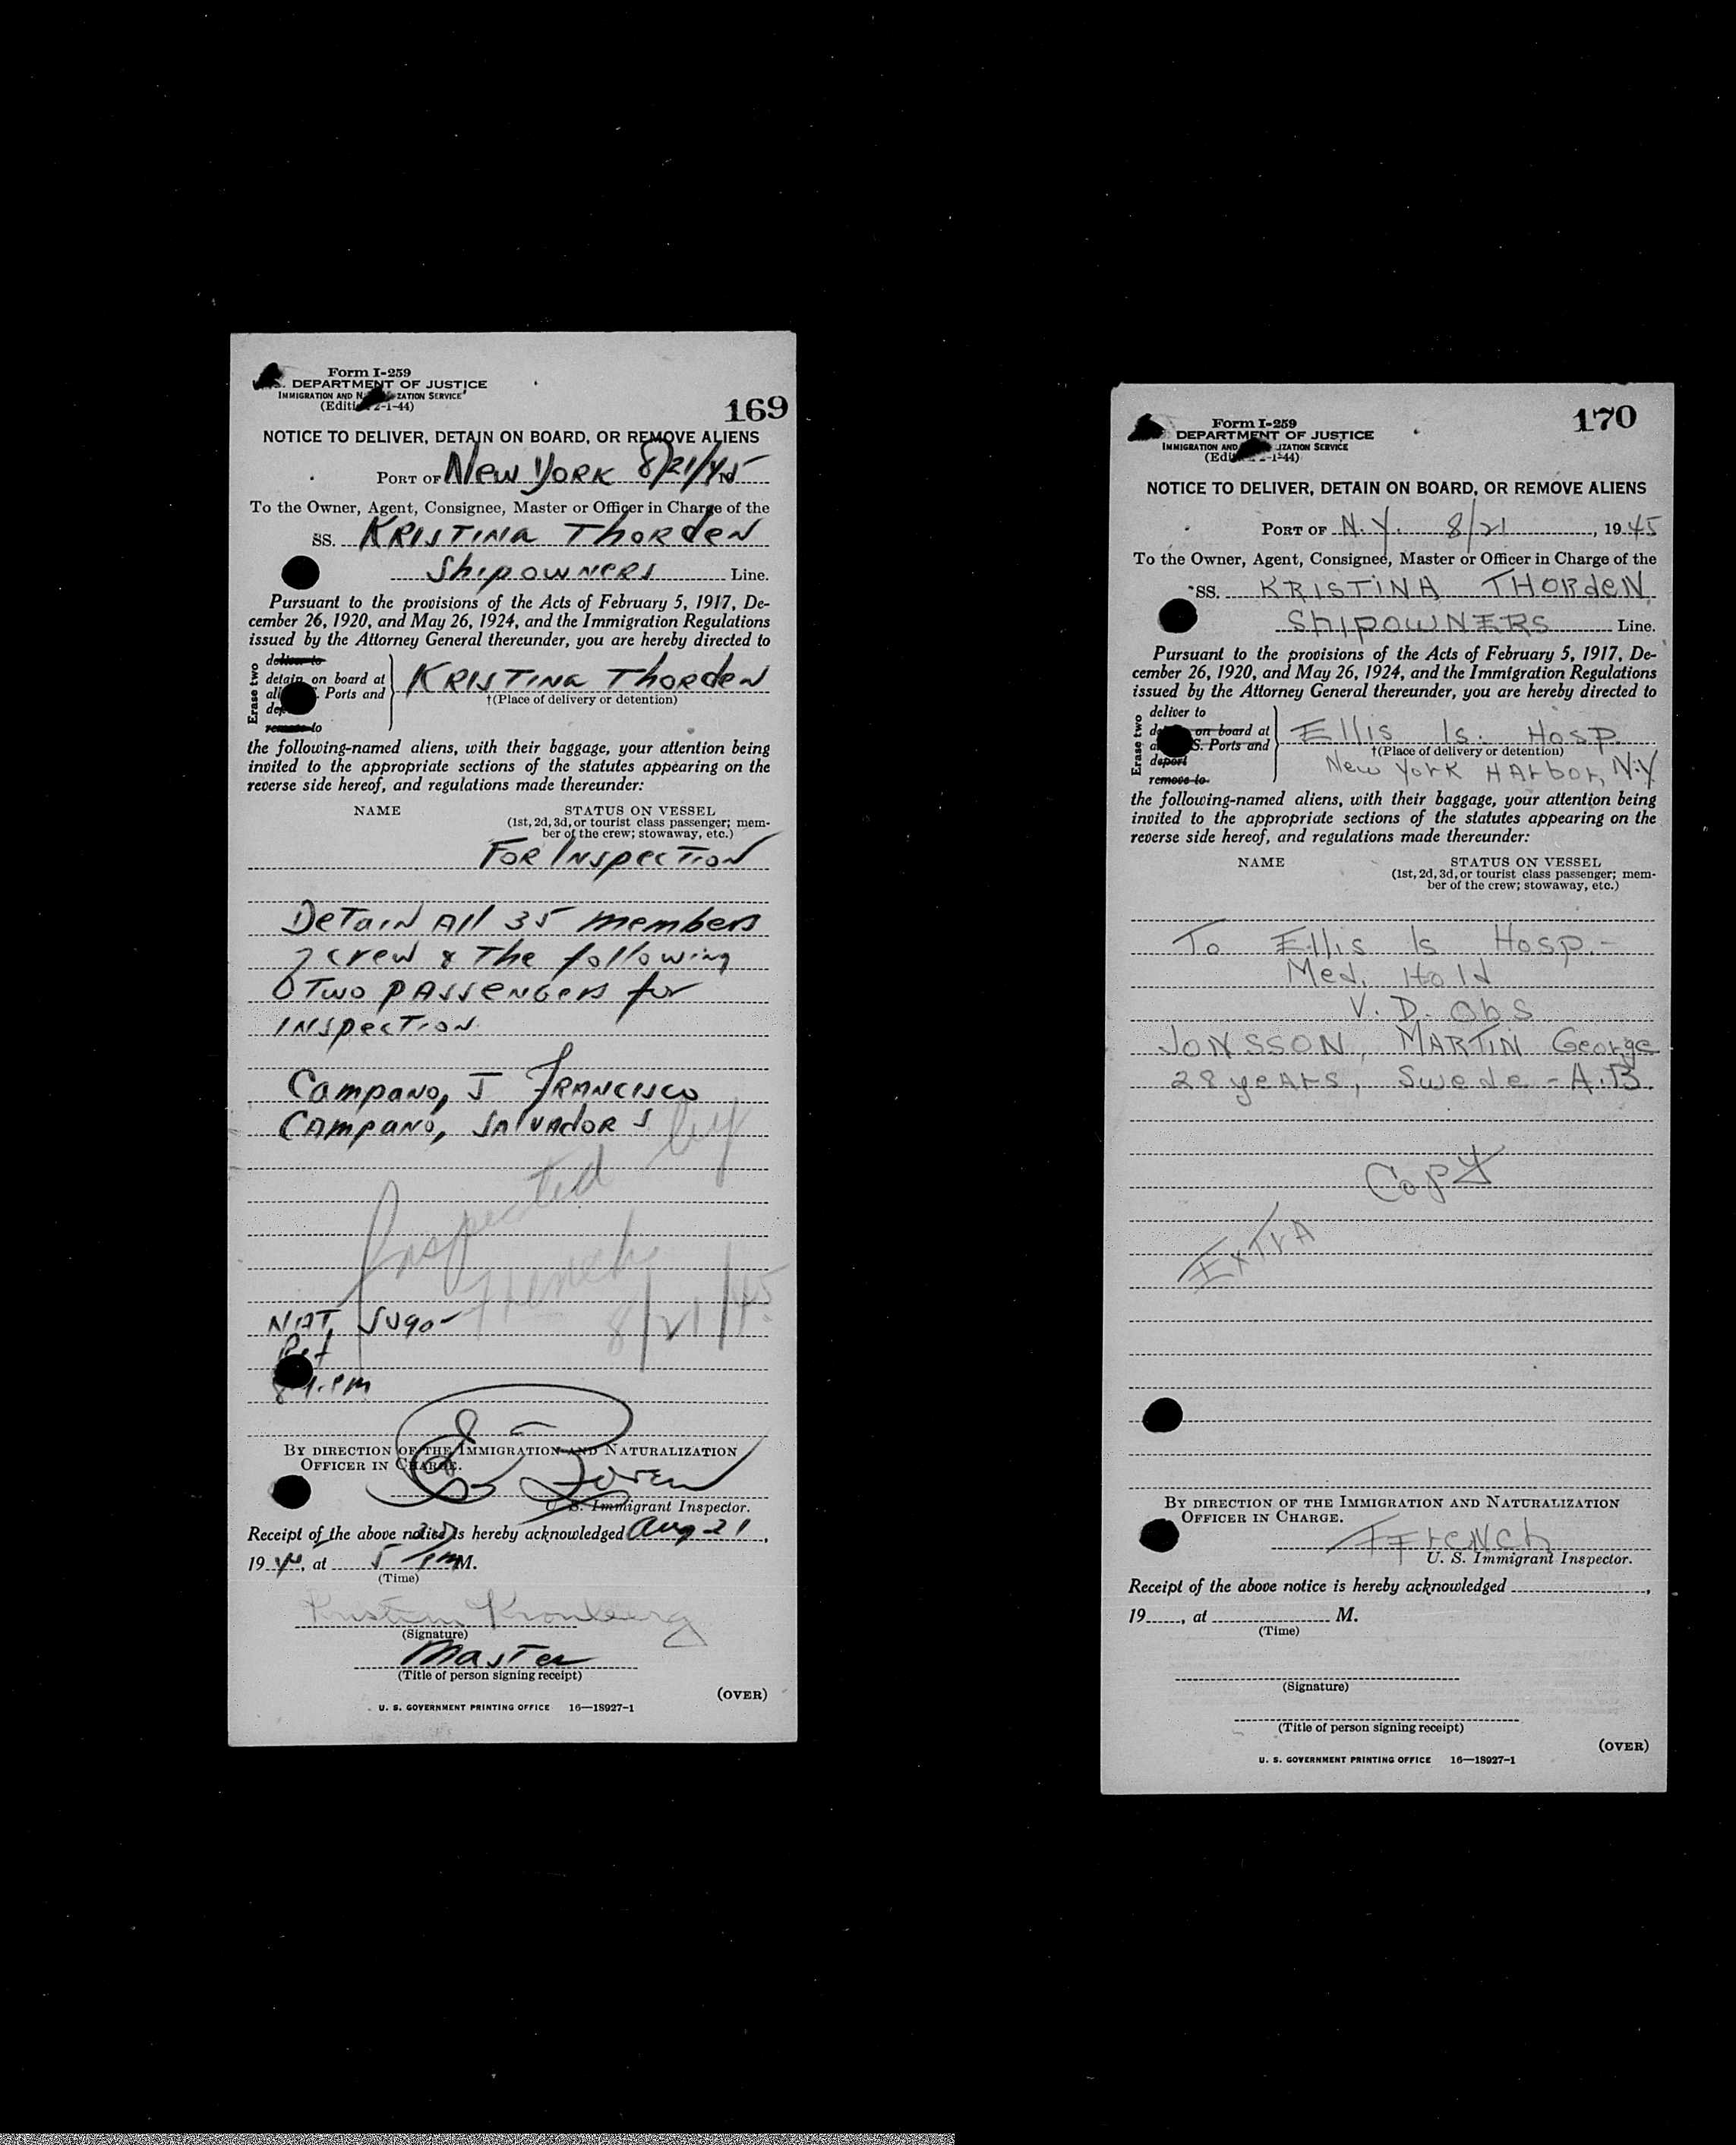 Form I-259
DEPARTMENT OF JUSTICE
IMMIGRATION AND N ZATION SERVICE
(Editi 2-1-44)
169
NOTICE TO DELIVER, DETAIN ON BOARD, OR REMOVE ALIENS
PORT OF New York 8/21/45
To the Owner, Agent, Consignee, Master or Officer in Charge of the
SS. KRISTINA THORDEN
Shipowners Line.
Pursuant to the provisions of the Acts of February 5, 1917, De-
cember 26, 1920, and May 26, 1924, and the Immigration Regulations
issued by the Attorney General thereunder, you are hereby directed to
Erase two
deliver to
detain on board at
all . Ports and
dep
remove to
KRISTINA THORDEN
†(Place of delivery or detention)
the following-named aliens, with their baggage, your attention being
invited to the appropriate sections of the statutes appearing on the
reverse side hereof, and regulations made thereunder:
NAME STATUS ON VESSEL
(1st, 2d, 3d, or tourist class passenger; mem-
ber of the crew; stowaway, etc.)
For Inspection
Detain All 35 members
of crew & The following
Two passengers for
inspection
Campano, J Francisco
Campano, Salvador S
Inspected by
French
8/21/45
PM
BY DIRECTION OF THE IMMIGRATION AND NATURALIZATION
OFFICER IN CHARGE.
U. S. Immigrant Inspector.
Receipt of the above notice is hereby acknowledged Aug 21,
19 , at 5 PM M.
(Time)
Kronberg
(Signature)
Master
(Title of person signing receipt)
(OVER)
U. S. GOVERNMENT PRINTING OFFICE 16—18927-1
Form I-259
DEPARTMENT OF JUSTICE
IMMIGRATION AND IZATION SERVICE
(Edi -1-44)
170
NOTICE TO DELIVER, DETAIN ON BOARD, OR REMOVE ALIENS
PORT OF N.Y. 8/21, 1945
To the Owner, Agent, Consignee, Master or Officer in Charge of the
SS. KRISTINA THORDEN
SHIPOWNERS Line.
Pursuant to the provisions of the Acts of February 5, 1917, De-
cember 26, 1920, and May 26, 1924, and the Immigration Regulations
issued by the Attorney General thereunder, you are hereby directed to
Erase two
deliver to
de on board at
a S. Ports and
deport
remove to
Ellis Is. Hosp.
†(Place of delivery or detention)
New York Harbor, N.Y
the following-named aliens, with their baggage, your attention being
invited to the appropriate sections of the statutes appearing on the
reverse side hereof, and regulations made thereunder:
NAME STATUS ON VESSEL
(1st, 2d, 3d, or tourist class passenger; mem-
ber of the crew; stowaway, etc.)
To Ellis Is Hosp.-
Med. Hold
V. D. Obs
JONSSON, MARTIN George
28 years, Swede - A.B.
Copy
Extra
BY DIRECTION OF THE IMMIGRATION AND NATURALIZATION
OFFICER IN CHARGE.
French
U. S. Immigrant Inspector.
Receipt of the above notice is hereby acknowledged ,
19 , at M.
(Time)
(Signature)
(Title of person signing receipt)
(OVER)
U. S. GOVERNMENT PRINTING OFFICE 16—18927-1